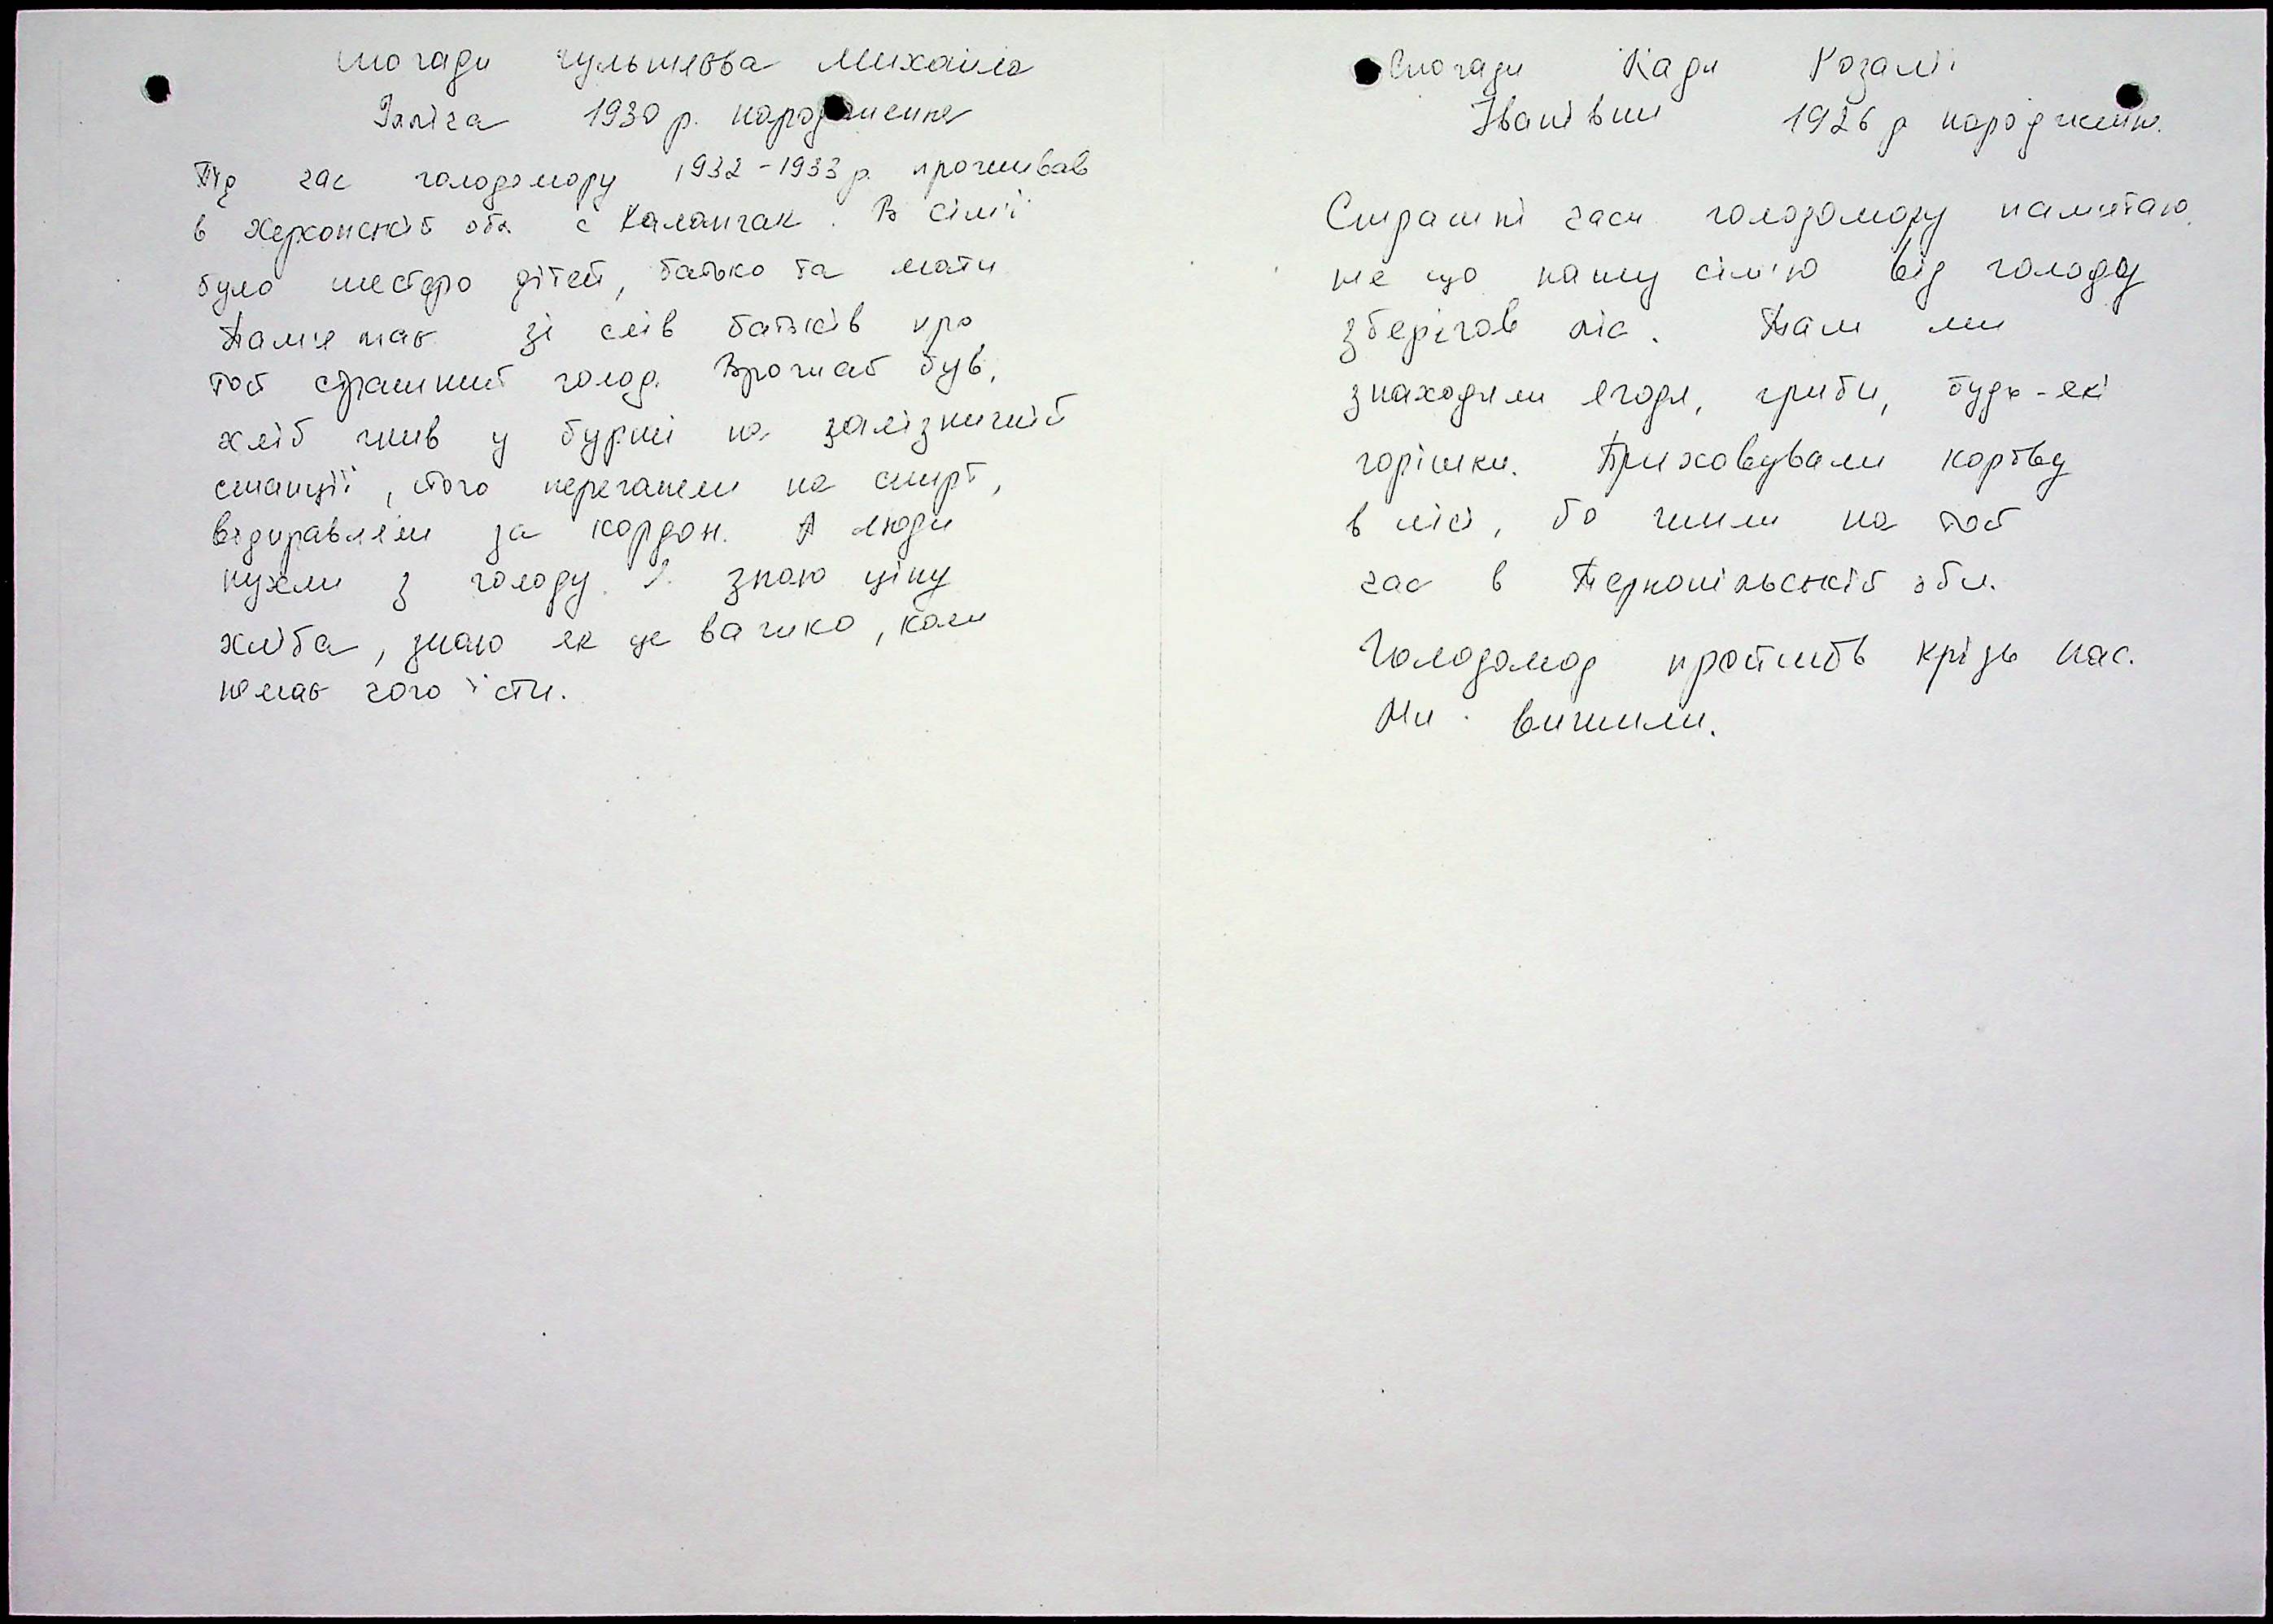 Спогади Гульцьова Михайла
Ілліча 1930 р. народження
Під час голодомору 1932-1933 р. проживав
в Херсонській обл с Каланчак. В сім'ї
було шестеро дітей, батько та мати
Пам'ятає зі слів батьків про
той страшний голод. Врожай був,
хліб гнив у бурті на залізничній
станції, його переганяли на спирт,
відправляли за кордон. А люди
пухли з голоду. Я знаю ціну
хліба, знаю як це важко, коли
немає чого їсти.
Спогади Кади Розалії
Іванівни 1926 р народження.
Страшні часи голодомору памятаю
те що нашу сім'ю від голоду
зберігав ліс. Там ми
знаходили ягоди, гриби, будь-які
горішки. Приховували корову
в лісі, бо жили на той
час в Тернопільській обл.
Голодомор пройшов крізь нас.
Ми вижили.